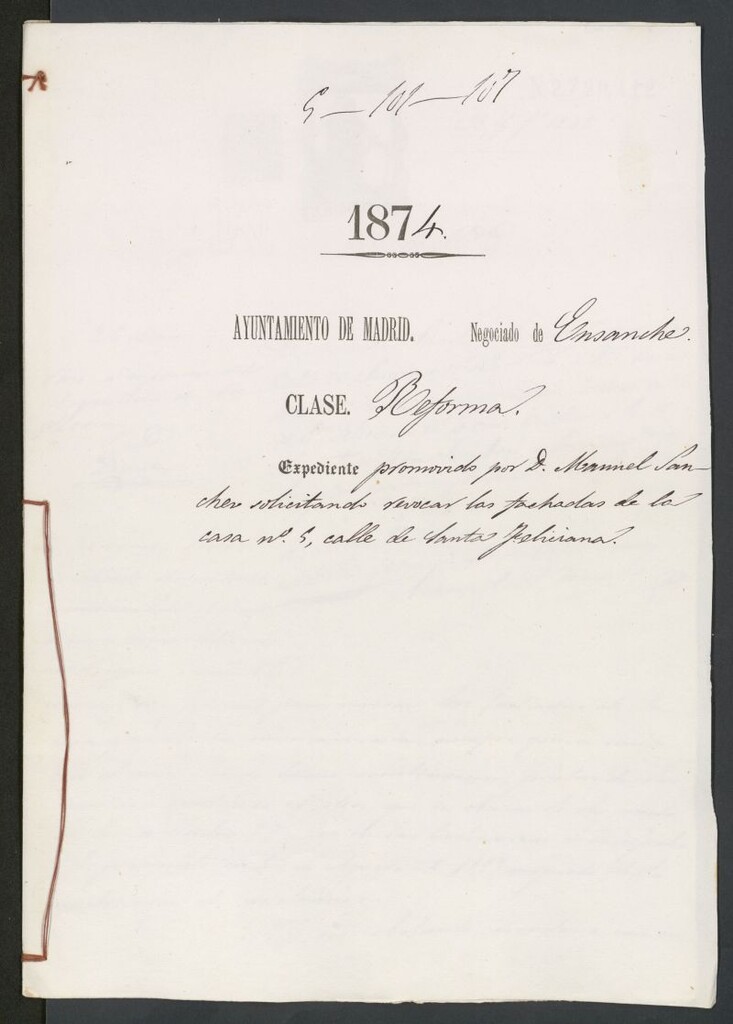 5-101-107
1874.
AYUNTAMIENTO DE MADRID. Negociado de Ensanche.
CLASE. Reforma.
Expediente promovido por D. Manuel San-
chez solicitando revocar las fachadas de la
casa nº. 5, calle de Santa Feliciana.